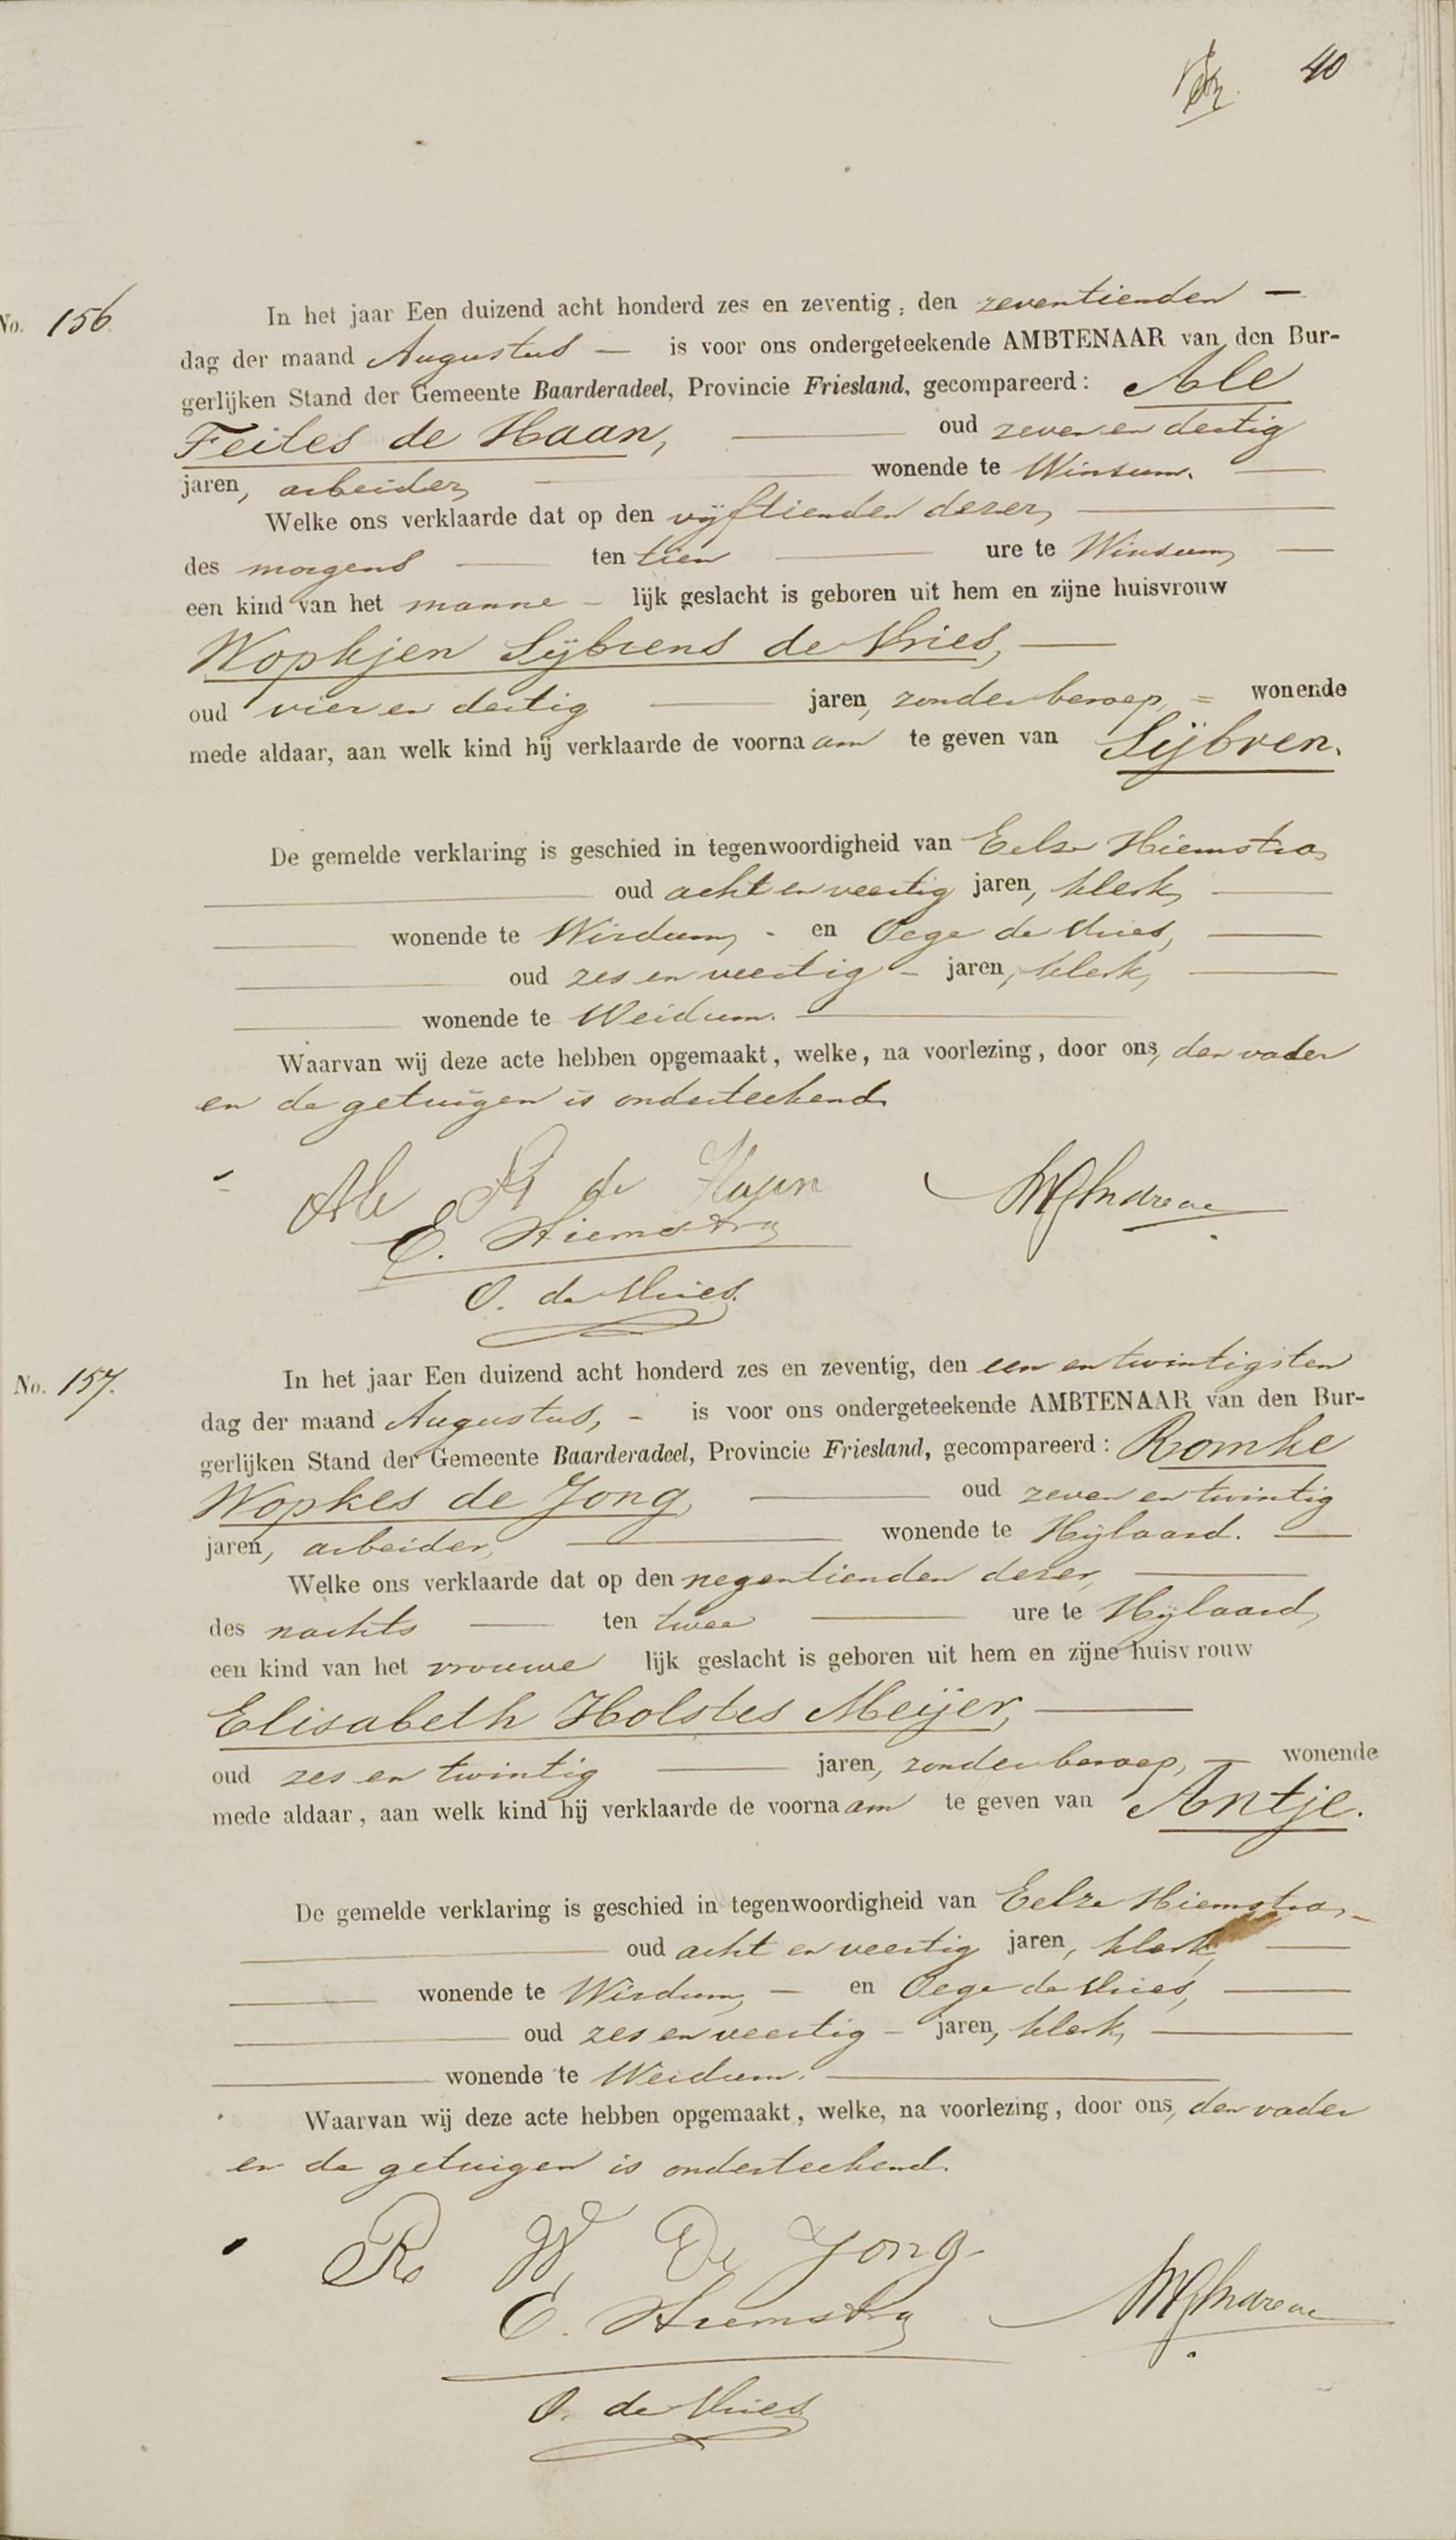 40
No. 156 In het jaar Een duizend acht honderd zes en zeventig, den zeventienden —
dag der maand Augustus — is voor ons ondergeteekende AMBTENAAR van den Bur-
gerlijken Stand der Gemeente Baarderadeel, Provincie Friesland, gecompareerd: Ale
Feites de Haan, — oud zeven en dertig
jaren, arbeider, — wonende te Winsum. —
Welke ons verklaarde dat op den vijftienden dezer, —
des morgens — ten tien — ure te Winsum, —
een kind van het manne - lijk geslacht is geboren uit hem en zijne huisvrouw
Wopkjen Sijbrens de Vries, —
oud vier en dertig — jaren, zonder beroep, = wonende
mede aldaar, aan welk kind hij verklaarde de voorna am te geven van Sijbren.
De gemelde verklaring is geschied in tegenwoordigheid van Eelze Hiemstra,
— oud acht en veertig jaren, klerk, —
— wonende te Wirdum, - en Oege de Vries, —
— oud zes en veertig - jaren, klerk, —
— wonende te Weidum. —
Waarvan wij deze acte hebben opgemaakt, welke, na voorlezing, door ons, den vader
en de getuigen is onderteekend.
Ale F de Haan
E. Hiemstra
O. de Vries.
No. 157. In het jaar Een duizend acht honderd zes en zeventig, den een en twintigsten
dag der maand Augustus, - is voor ons ondergeteekende AMBTENAAR van den Bur-
gerlijken Stand der Gemeente Baarderadeel, Provincie Friesland, gecompareerd: Romke
Wopkes de Jong, — oud zeven en twintig
jaren, arbeider, — wonende te Hijlaard. —
Welke ons verklaarde dat op den negentienden dezer, —
des nachts — ten twee — ure te Hijlaard,
een kind van het vrouwe lijk geslacht is geboren uit hem en zijne huisv rouw
Elisabeth Holstes Meijer, —
oud zes en twintig — jaren, zonder beroep, — wonende
mede aldaar, aan welk kind hij verklaarde de voorna am te geven van Antje.
De gemelde verklaring is geschied in tegenwoordigheid van Eelze Hiemstra, -
— oud acht en veertig jaren, klerk, —
— wonende te Wirdum, — en Oege de Vries, —
— oud zes en veertig - jaren, klerk, —
— wonende te Weidum. —
Waarvan wij deze acte hebben opgemaakt, welke, na voorlezing, door ons, den vader
en de getuigen is onderteekend.
R W De Jong
E. Hiemstra
O. de Vries